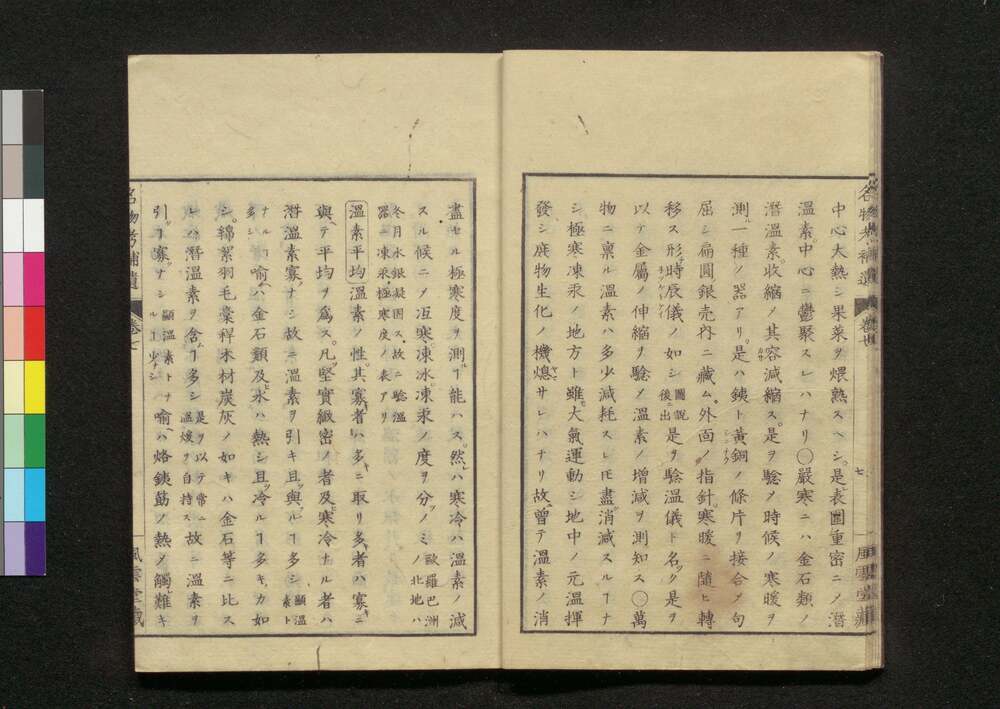 中心大熱シ果菜ヲ煨熟スヘシ是レ表圍重密ニノ潛
溫素中心ニ鬱聚スレハナリ〇嚴寒ニハ金石類ノ
潛溫素收縮ノ其容減縮ス是ヲ驗ノ時候ノ寒暖ヲ
測ル一種ノ器アリ是ハ銕ト黃銅ノ條片ヲ接合ノ句
屈シ扁圓銀壳內ニ藏ム外面ノ指針寒暖ニ隨ヒ轉
移ス形チ時辰儀ノ如シ圖說後出是ヲ驗溫儀ト名ク是ヲ
以テ金屬ノ伸縮ヲ驗ノ溫素ノ增減ヲ測知ス〇萬
物ニ稟ル溫素ハ多少減耗スレ𪜈盡ク消減スルヿナ
シ極寒凍汞ノ地方ト雖大氣運動シ地中ノ元溫揮
發シ庶物生化ノ機熄サレハナリ故ニ曾テ溫素ノ消
盡セル極寒度ヲ測ルヿ能ハス然レハ寒冷ハ溫素ノ減
スル候ニノ冱寒凍冰凍汞ノ度ヲ分ツノミ歐羅巴洲ノ北地ハ
冬月水銀凝固ス故ニ驗溫器ニ凍汞極寒度ノ表アリ
溫素平均溫素ノ性其寡キ者ハ多キニ取リ多キ者ハ寡キニ
與ヘテ平均ヲ爲ス凡ソ堅實緻密ノ者及ヒ寒冷ナル者ハ
潛溫素寡ナシ故ニ溫素ヲ引キ且ツ與フルヿ多シ顯溫素ト
ナルヿ多シ喻ヘハ金石類及ヒ氷ハ熱シ且ツ冷ルヿ多キカ如
シ綿絮羽毛藁稈木材炭灰ノ如キハ金石等ニ比ス
レハ潛溫素ヲ含ムヿ多シ是ヲ以テ常ニ溫煖ヲ自持ス故ニ溫素ヲ
引クヿ寡ナシ顯溫素トナルヿ少ナシ喻ヘハ烙銕筋ノ熱ノ觸レ難キ
名物考補遺
卷七
七
風雲堂藏